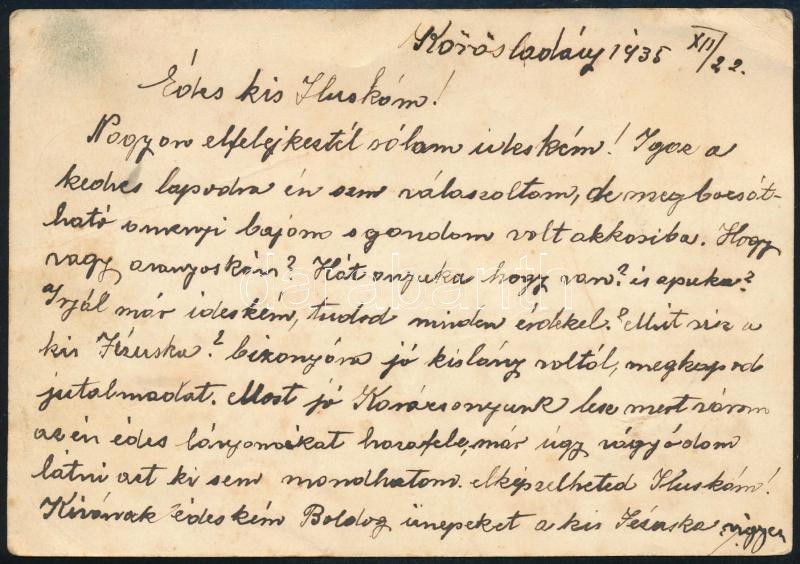 Körösladány 1935 XII/22.
Édes kis Iluskám!
Nagyon elfelejkeztél rólam ideském! Igaz a
kedves lapodra én sem válaszoltam, de megbocsát-
ható anenyi bajom s gondom volt akkoriba. Hogy
vagy aranyoskám? Hát anyuka hogy van? és apuka?
Irjál már ideském, tudod minden érdekel.? Mit visz a
kis Jézuska? bizonyára jó kislány voltál, megkapod
jutalmadat. Most jó Karácsonyunk lesz mert várom
az én édes lányomékat hazafele, már úgy vágyódom
látni azt ki sem mondhatom. elképzelheted Iluskám!
Kivánok édeském Boldog ünepeket a kis Jézuska vigyen
darabanth